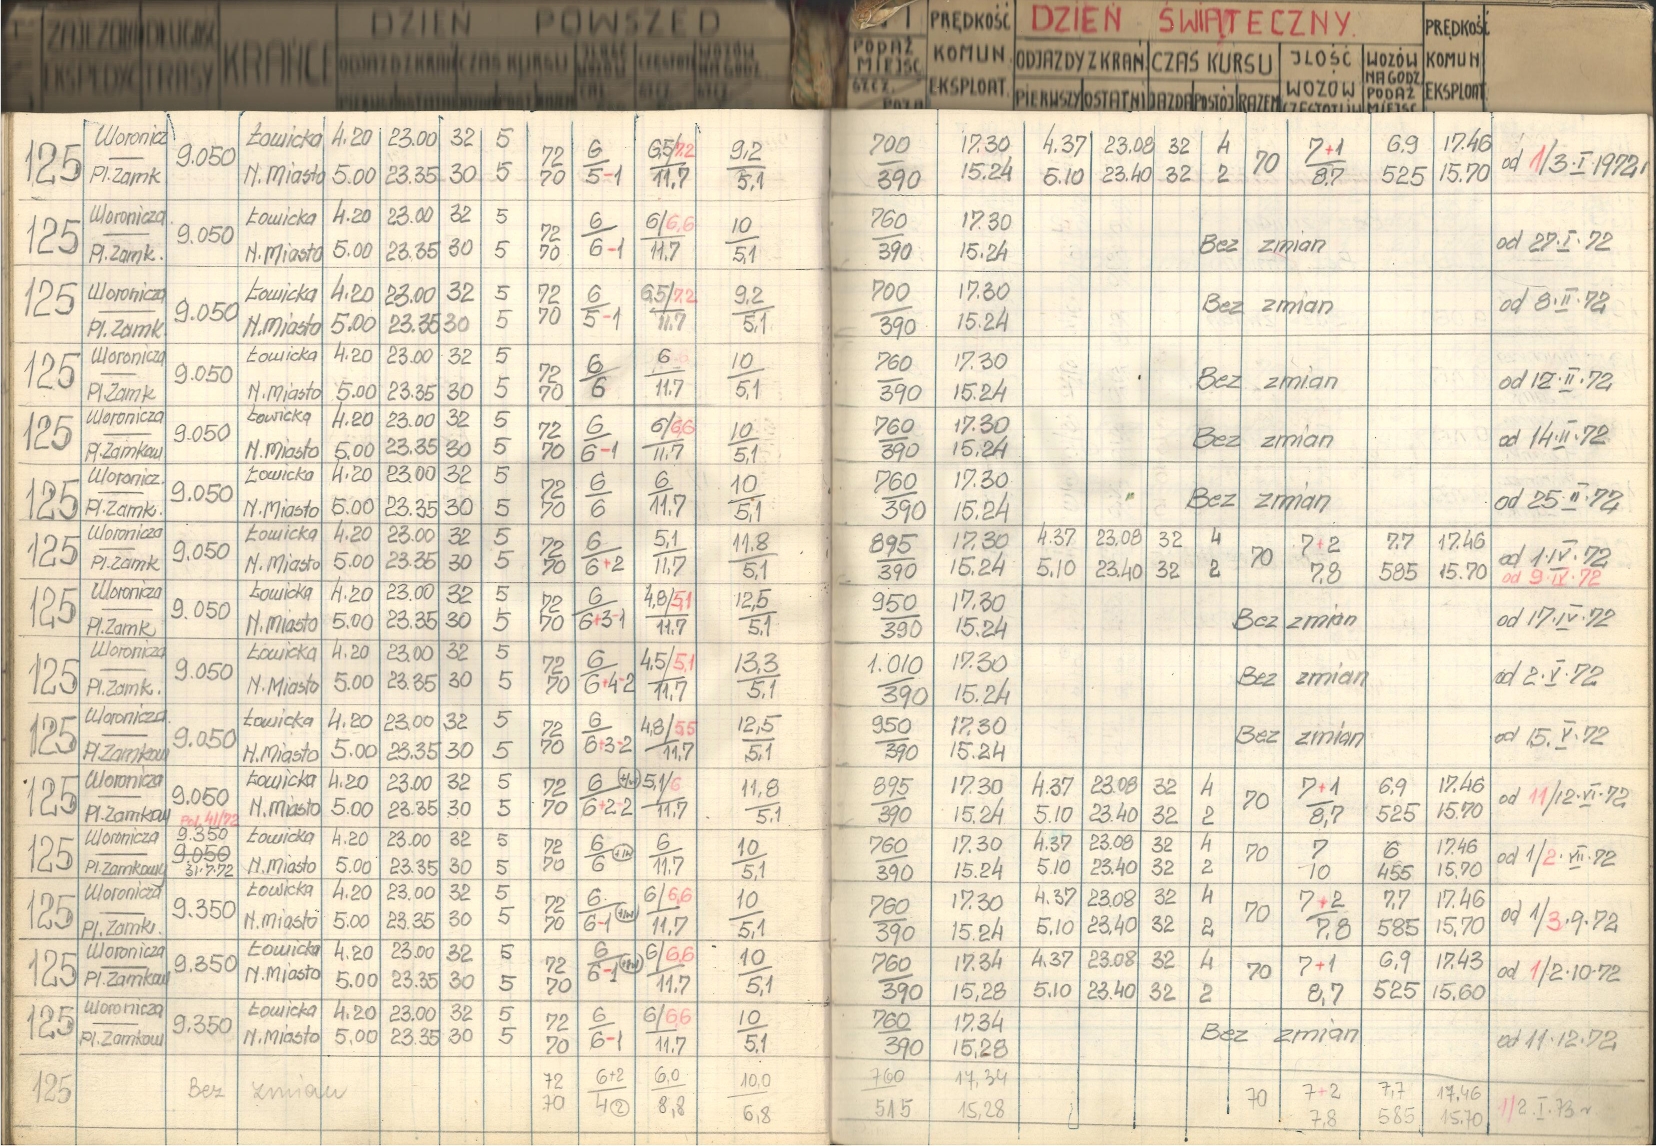 ZAJEZDNIA DŁUGOŚĆ KRAŃCE DZIEŃ POWSZED
EKSPLOAT. TRASY ODJAZDY Z KRAŃ CZAS KURSU
PODAŻ MIEJSC SZCZ. PRĘDKOŚĆ KOMUN. EKSPLOAT. DZIEŃ ŚWIĄTECZNY. PRĘDKOŚĆ KOMUN. EKSPLOAT.
ODJAZDY Z KRAŃ CZAS KURSU ILOŚĆ WOZÓW WOZÓW NA GODZ PODAŻ MIEJSC
PIERWSZY OSTATNI JAZDA POSTÓJ RAZEM CZĘSTOTLIW
125 Woronicz 9.050 Łowicka 4.20 23.00 32 5 72 6 6,5/7.2 9,2 700 17.30 4.37 23.08 32 4 70 7+1 6,9 17.46 od 1/3·I·1972r
Pl.Zamk N.Miasto 5.00 23.35 30 5 70 5-1 11,7 5,1 390 15.24 5.10 23.40 32 2 8,7 525 15.70
125 Woronicza 9.050 Łowicka 4.20 23.00 32 5 72 6 6/6,6 10 760 17.30 Bez zmian od 27·I·72
Pl.Zamk. N.Miasto 5.00 23.35 30 5 70 6-1 11.7 5,1 390 15.24
125 Woronicza 9.050 Łowicka 4.20 23.00 32 5 72 6 6,5/7.2 9.2 700 17.30 Bez zmian od 8·II·72
Pl.Zamk N.Miasto 5.00 23.35 30 5 70 5-1 11.7 5,1 390 15.24
125 Woronicza 9.050 Łowicka 4.20 23.00 32 5 72 6 6 10 760 17.30 Bez zmian od 12·II·72
Pl.Zamk N.Miasto 5.00 23.35 30 5 70 6 11.7 5,1 390 15.24
125 Woronicza 9.050 Łowicka 4.20 23.00 32 5 72 6 6/6,6 10 760 17.30 Bez zmian od 14·II·72
Pl.Zamkow N.Miasto 5.00 23.35 30 5 70 6-1 11.7 5,1 390 15.24
125 Woronicz. 9.050 Łowicka 4.20 23.00 32 5 72 6 6 10 760 17.30 Bez zmian od 25·II·72
Pl.Zamk. N.Miasto 5.00 23.35 30 5 70 6 11.7 5,1 390 15.24
125 Woronicza 9.050 Łowicka 4.20 23.00 32 5 72 6 5,1 11,8 895 17.30 4.37 23.08 32 4 70 7+2 7,7 17.46 od 1·IV·72
Pl.Zamk N.Miasto 5.00 23.35 30 5 70 6+2 11,7 5,1 390 15.24 5.10 23.40 32 2 7,8 585 15.70 od 9·IV·72
125 Woronicza 9.050 Łowicka 4.20 23.00 32 5 72 6 4,8/5,1 12,5 950 17.30 Bez zmian od 17·IV·72
Pl.Zamk N.Miasto 5.00 23.35 30 5 70 6+3-1 11.7 5,1 390 15.24
125 Woronicza 9.050 Łowicka 4.20 23.00 32 5 72 6 4,5/5,1 13,3 1.010 17.30 Bez zmian od 2·V·72
Pl.Zamk. N.Miasto 5.00 23.35 30 5 70 6+4-2 11,7 5,1 390 15.24
125 Woronicza. 9.050 Łowicka 4.20 23.00 32 5 72 6 4,8/5,5 12,5 950 17.30 Bez zmian od 15.V·72
Pl.Zamkow N.Miasto 5.00 23.35 30 5 70 6+3-2 11,7 5,1 390 15.24
125 Woronicza 9.050 Łowicka 4.20 23.00 32 5 72 6 5,1/6 11,8 895 17.30 4.37 23.08 32 4 70 7+1 6,9 17.46 od 11/12·VI·72
Pl.Zamkow Pol.41/72 N.Miasto 5.00 23.35 30 5 70 6+2-2 11,7 5,1 390 15.24 5.10 23.40 32 2 8,7 525 15.70
125 Woronicza 9.350 Łowicka 4.20 23.00 32 5 72 6 6 10 760 17.30 4.37 23.08 32 4 70 7 6 17.46 od 1/2·VII·72
9.050
Pl.Zamkow 31·7·72 N.Miasto 5.00 23.35 30 5 70 6 11.7 5,1 390 15.24 5.10 23.40 32 2 10 455 15,70
125 Woronicza 9.350 Łowicka 4.20 23.00 32 5 72 6 6/6,6 10 760 17.30 4.37 23.08 32 4 70 7+2 7,7 17.46 od 1/3·9·72
Pl.Zamk. N.Miasto 5.00 23.35 30 5 70 6-1 11.7 5,1 390 15.24 5.10 23.40 32 2 7,8 585 15,70
125 Woronicza 9.350 Łowicka 4.20 23.00 32 5 72 6 6/6,6 10 760 17.34 4.37 23.08 32 4 70 7+1 6,9 17.43 od 1/2·10·72
Pl.Zamkow N.Miasto 5.00 23.35 30 5 70 6-1 11,7 5,1 390 15,28 5.10 23.40 32 2 8,7 525 15.60
125 Woronicza 9.350 Łowicka 4.20 23.00 32 5 72 6 6/6,6 10 760 17.34 Bez zmian od 11·12·72
Pl.Zamkow N.Miasto 5,00 23.35 30 5 70 6-1 11.7 5,1 390 15,28
125 Bez zmian 72 6+2 6,0 10,0 760 17,34 70 7+2 7,7 17,46 1/2·I·73r
70 4② 8,8 6,8 515 15,28 7,8 585 15.70